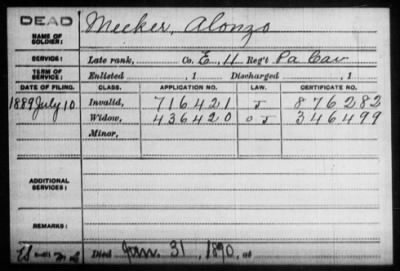 DEAD
NAME OF SOLDIER: Meeker, Alonzo
SERVICE: Late rank, Co. E, 11 Reg't Pa Cav
TERM OF SERVICE: Enlisted , 1 Discharged , 1
DATE OF FILING. CLASS. APPLICATION NO. LAW. CERTIFICATE NO.
1889 July 10 Invalid, 716421 J 876282
Widow, 436420 OJ 346499
Minor,
ADDITIONAL SERVICES:
REMARKS:
Died Jan. 31, 1890, at